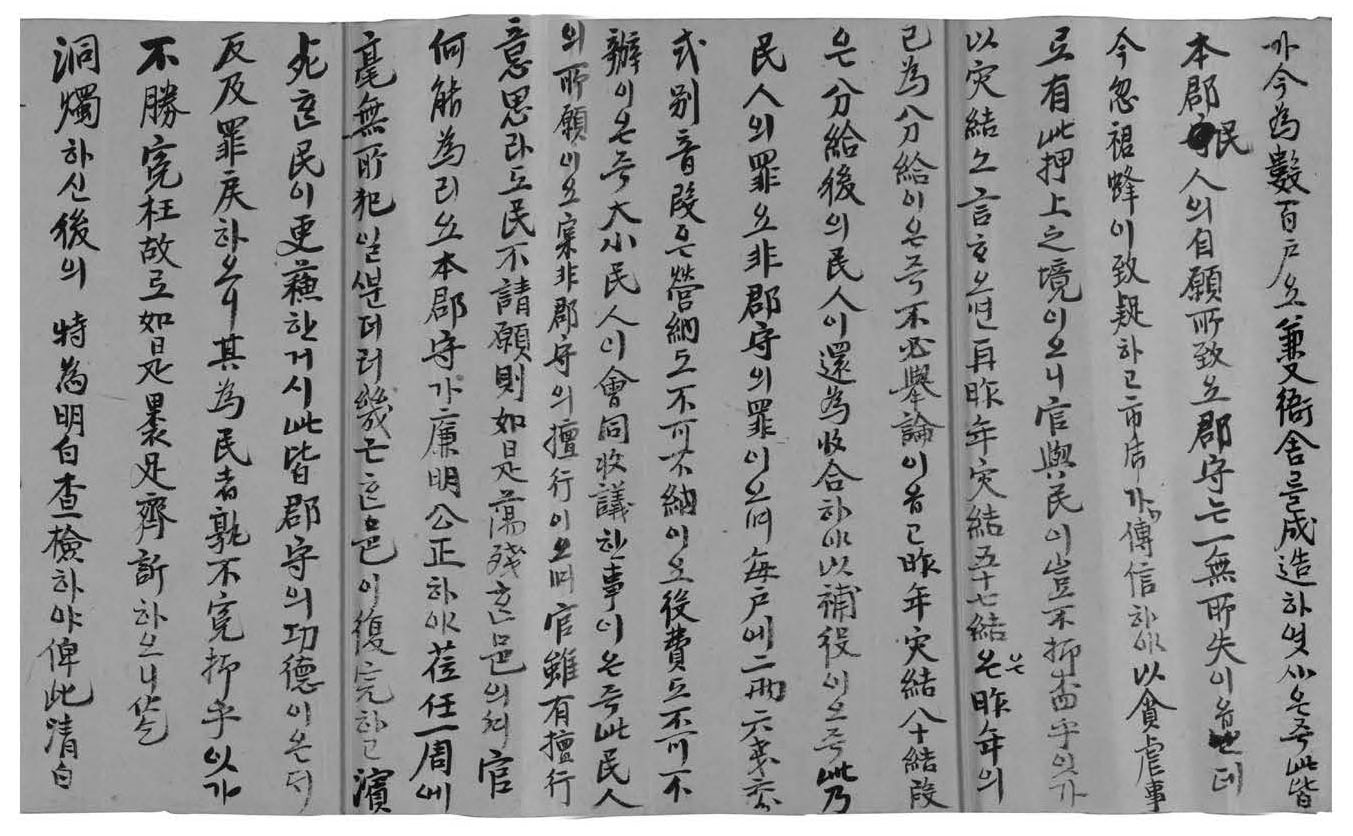 가今為數百戶오兼又衙舍를成造하엿사온즉此皆
本郡民人의自願所致오郡守는一無所失이온데
今忽裙蜂이致疑하고市虎가傳信하야以貪虐事
로有此押上之境이오니官與民이豈不抑盃乎잇가
以灾結노言호오면再昨年灾結五十七結은昨年의
已為分給이온즉不必擧論이옵고昨年灾結八十結段
은分給後의民人이還為收合하야以補役이온즉此乃
民人의罪요非郡守의罪이오며每戶에二兩六戔零
式別音段은營納도不可不納이오役費도不可不
辦이온즉大小民人이會同收議한事이온즉此民人
의所願이오寔非郡守의擅行이오며官雖有擅行
意思라도民不請願則如是蕩殘한邑의셔官
何能為리요本郡守가廉明公正하야莅任一周에
毫無所犯일뿐더러幾亡한邑이復完하고濱
死한民이更蘓한거시此皆郡守의功德이온더
反及罪戾하오니其為民者孰不寃抑乎잇가
不勝寃枉故로如是裹足齊訴하오니
洞燭하신後의 特為明白査檢하야俾此清白